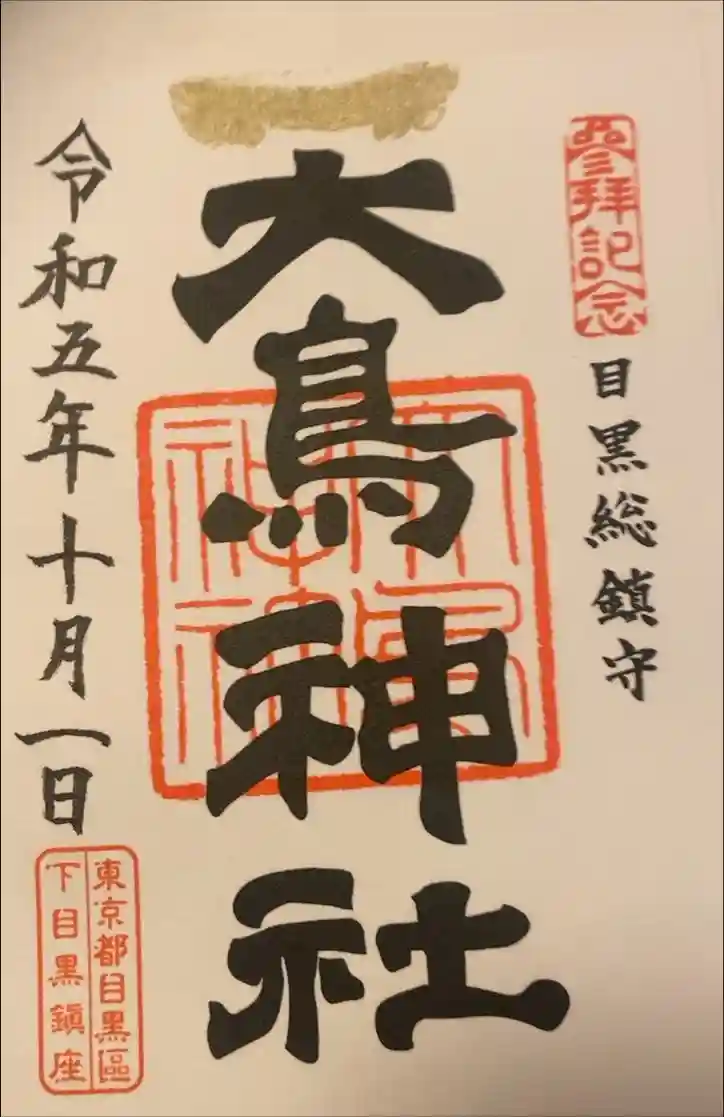 參拜記念
目黒総鎮守
大鳥神社
令和五年十月一日
東京都目黒區
下目黒鎮座